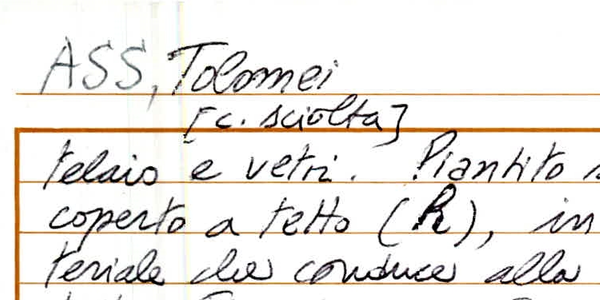 ASS, Tolomei
[c. sciolta]
telaio e vetri. Piantito
coperto a tetto (R), in
teriale che conduce alla